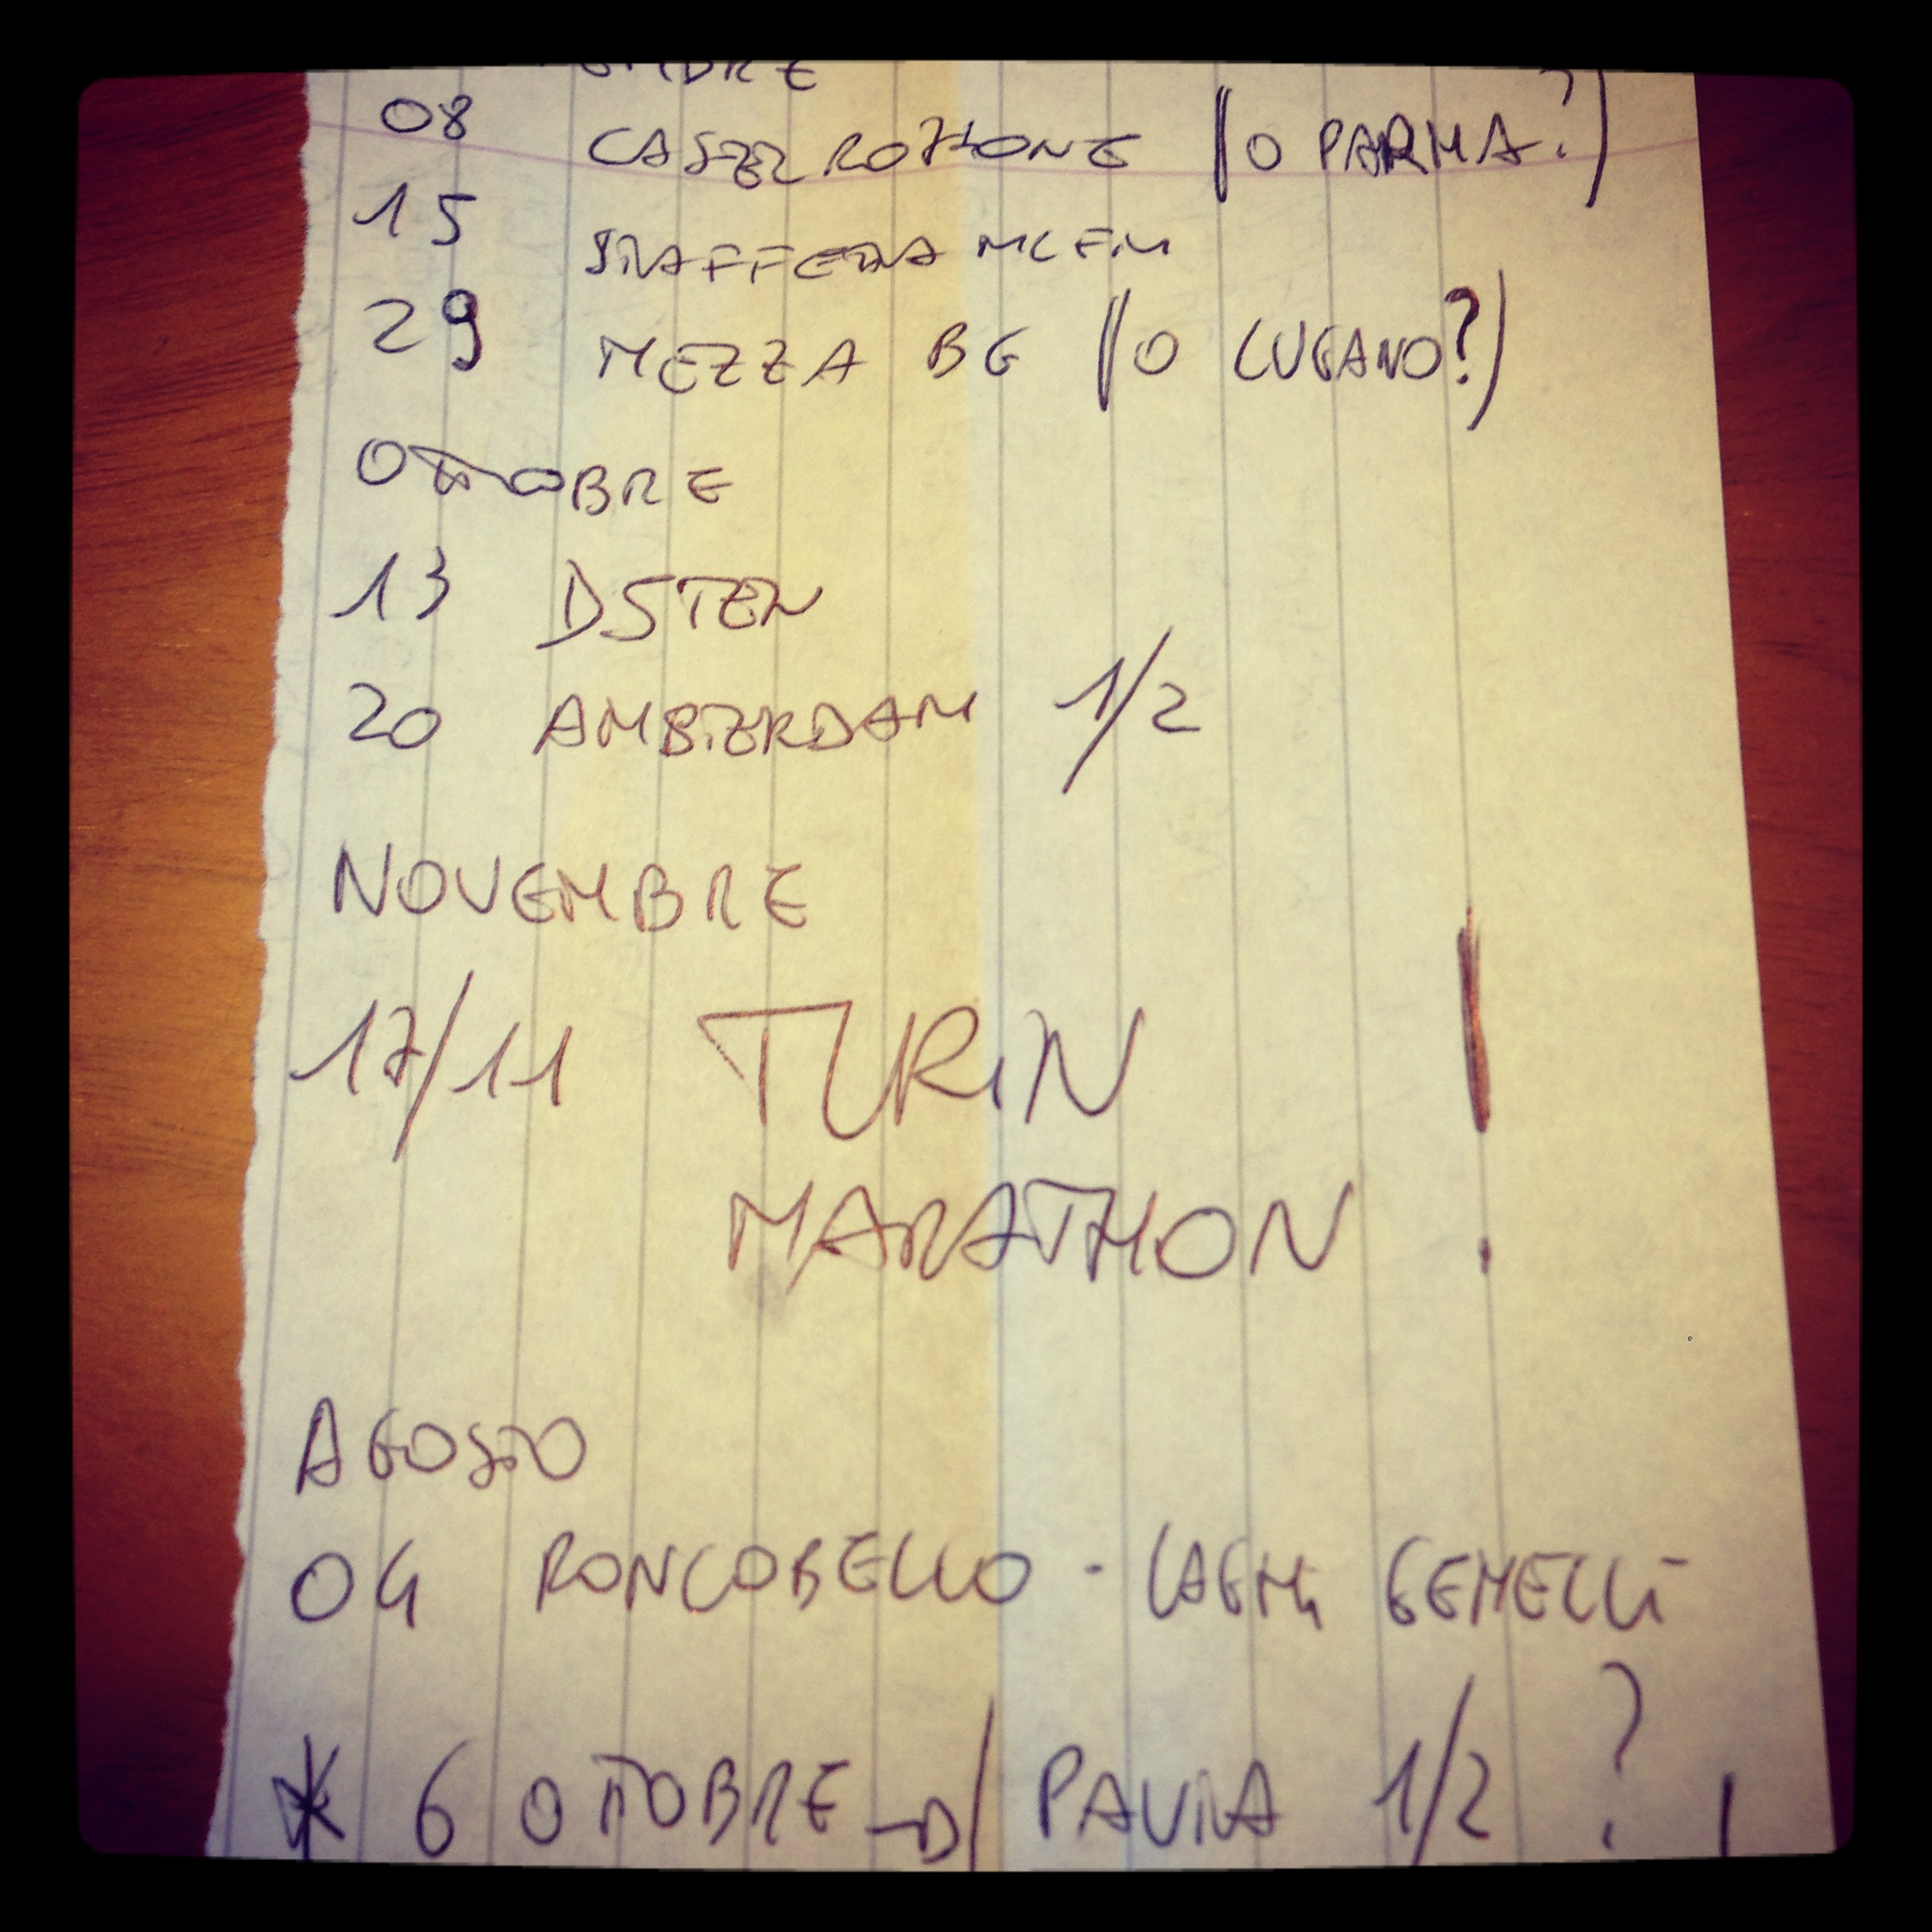 08 CASTEL ROZZONE (O PARMA?)
15 STAFFETTA MCFM
29 MEZZA BG (O LUGANO?)
OTTOBRE
13 DSTEN
20 AMSTERDAM 1/2
NOVEMBRE
17/11 TURIN
MARATHON !
AGOSTO
04 RONCOBELLO - LAGHI GEMELLI
* 6 OTTOBRE → PAVIA 1/2 ?